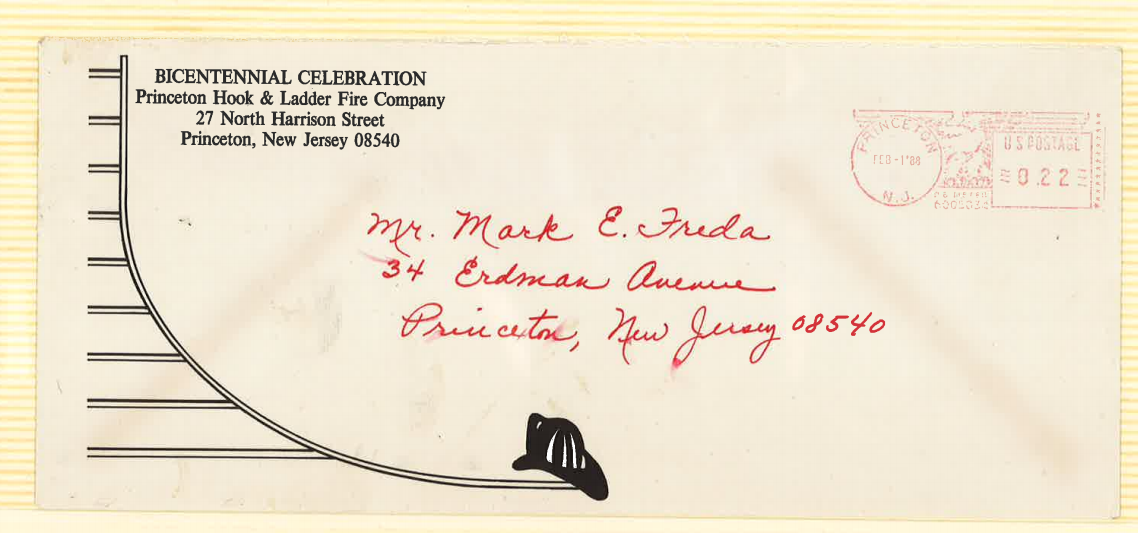 BICENTENNIAL CELEBRATION
Princeton Hook & Ladder Fire Company
27 North Harrison Street
Princeton, New Jersey 08540
PRINCETON
FEB -1'88
N.J.
U S POSTAGE
0.22
Mr. Mark E. Freda
34 Erdman Avenue
Princeton, New Jersey 08540